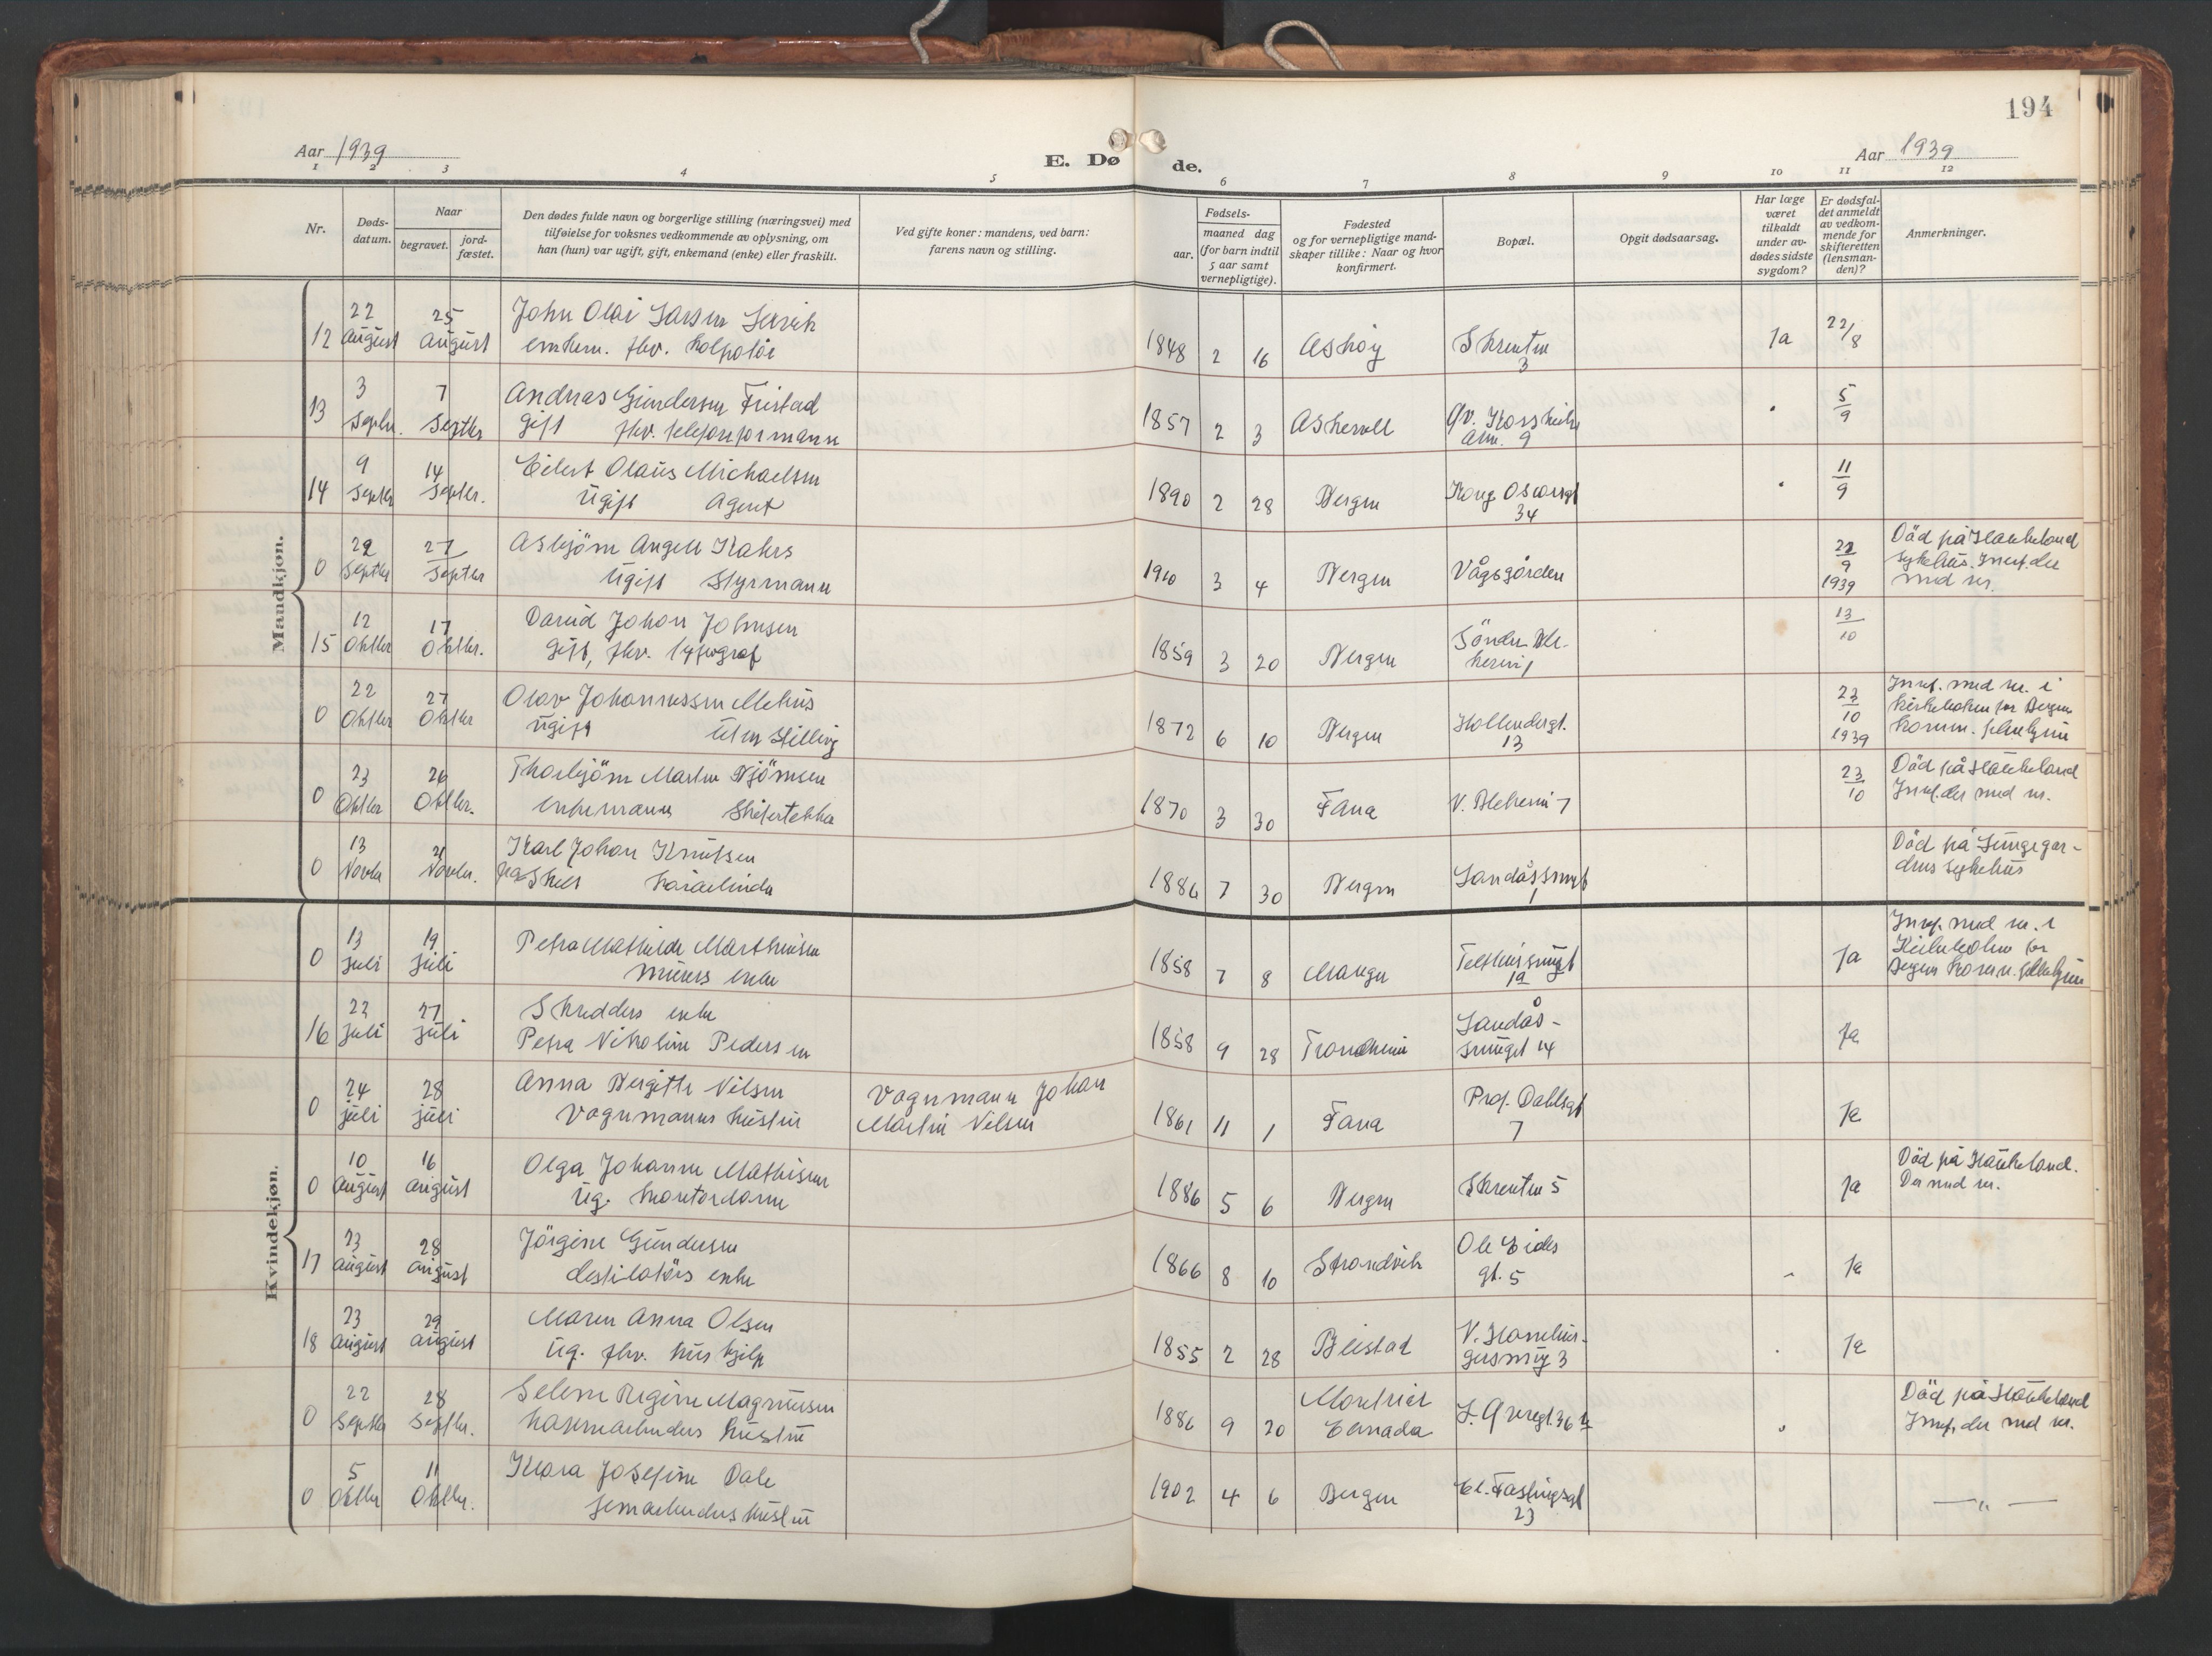 194
Aar 1939
E. Døde.
Aar 1939
1 2 3 4 5 6 7 8 9 10 11 12
Nr.
Døds-
datum.
Naar
begravet.
jord-
fæstet.
Den dødes fulde navn og borgerlige stilling (næringsvei) med
tilføielse for voksnes vedkommende av oplysning, om
han (hun) var ugift, gift, enkemand (enke) eller fraskilt.
Ved gifte koner: mandens, ved barn:
farens navn og stilling.
Fødsels-
aar.
maaned dag
(for barn indtil
5 aar samt
vernepligtige).
Fødested
og for vernepligtige mand-
skaper tillike: Naar og hvor
konfirmert.
Bopæl.
Opgit dødsaarsag.
Har læge
været
tilkaldt
under av-
dødes sidste
sygdom?
Er dødsfal-
det anmeldt
av vedkom-
mende for
skifteretten
(lensman-
den)?
Anmerkninger.
Mandkjøn.
12 22 august 25 august John Olai Larsen
enkem. fhv. 1848 2 16 Askøy Skrenten 3 Ja 22/8
13 3 Septbr. 7 Septbr Andreas Gundersen Fristad
gift fhv. telefonformann 1857 2 3 Askevoll Øv. Korskirke
alm. 9 5/9
14 9 Septbr 14 Septbr. Eilert Olaus Michaelsen
Ugift Agent 1890 2 28 Bergen Kong Oscarsgt
34 11/9
0 22 Septbr 27 Septbr Asbjörn Angell Kahrs
Ugift Styrmann 1910 3 4 Bergen Vågsgården 22/9 1939 Död på Haukeland
sykehus. Innf. der
med nr.
15 12 Oktbr 17 Oktbr. David Johan Johnsen
Gift, fhv. typograf 1859 3 20 Bergen Söndre Ble-
kevei 1 13/10
0 22 Oktbr 27 Oktbr Olav Johannessen Mehus
Ugift Uten Stilling 1872 6 10 Bergen Hollendergt.
13 23/10 1939 Innf. med nr. i
kirkeboken for Bergen
komm. pleiehjem
0 23 Oktbr 26 Oktbr. Thorbjörn Martin Bjömsen
enkemann Skifertekker 1870 3 30 Fana V. Blekevei 7 23/10 Död på Haukeland
Innf. der med nr.
0 13 Novbr 21 Novbr. Karl Johan Knutsen
fraskilt 1886 7 30 Bergen Landåssmgt
1 Död på Lungegar-
dens sykehus
Kvindekjøn.
0 13 Juli 19 Juli Petra Mathilde Marthinsen
murers enke 1858 7 8 Manger 1a Ja Innf. med nr. i
Kirkeboken for
Bergens komm. pleiehjem
16 22 Juli 27 Juli Skredders enke
Petra Nikoline Pedersen 1858 9 28 Trondheim Landås-
smuget 14 Ja
0 24 juli 28 juli Anna Bergitte Nilsen
Vognmanns hustru Vognmann Johan
Martin Nilsen 1861 11 1 Fana Prof. Dahlsgt
7 Ja
0 10 august 16 august Olga Johanne Mathisen
Ug. kontordame 1886 5 6 Bergen Skrenten 5 Ja Död på Haukeland.
Der med nr.
17 23 august 28 august Jörgine Gundersen
destilatörs enke 1866 8 10 Strandvik Ole Eides
gt. 5 Ja
18 23 august 29 august Maren Anna Olsen
Ug. fhv. hushjelp 1855 2 28 Beistad 3 Ja
0 22 Septbr 28 Septbr. Selene Regine Magnussen
havnearbeiders hustru 1886 9 20 Montreal
Canada 36 Död på Haukeland
Innf. der med nr.
0 5 Oktbr 11 Oktbr. Klara Josefine Dale
jernarbeiders hustru 1902 4 6 Bergen Cl. Fastingsgt
23 — " —